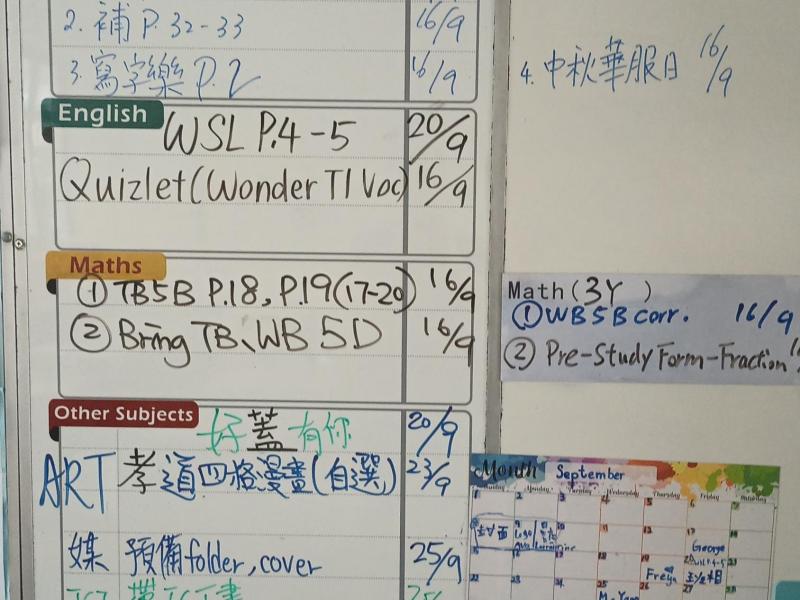 2. 補 P.32-33 16/9
3. 寫字樂 P.2 16/9
4. 中秋華服日 16/9
English
WSL P.4-5 20/9
Quizlet (Wonder T1 Voc) 16/9
Maths
① TB5B P.18, P.19 (17-20) 16/9
② Bring TB、WB 5D 16/9
Math (3Y )
① WB5B corr. 16/9
② Pre-Study Form-Fraction
Other Subjects
好蓋有你 20/9
ART 孝道四格漫畫(自選) 23/9
媒 預備folder, cover 25/9
Month September
George
Freya